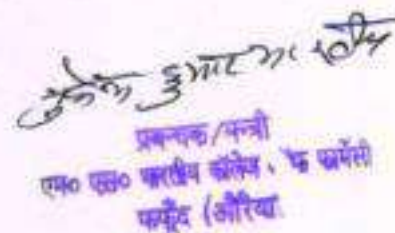 कुमार
प्रबन्धक/मन्त्री
एम० एस० भारतीय कॉलेज, ऑफ फार्मेसी
फफूँद (औरैया